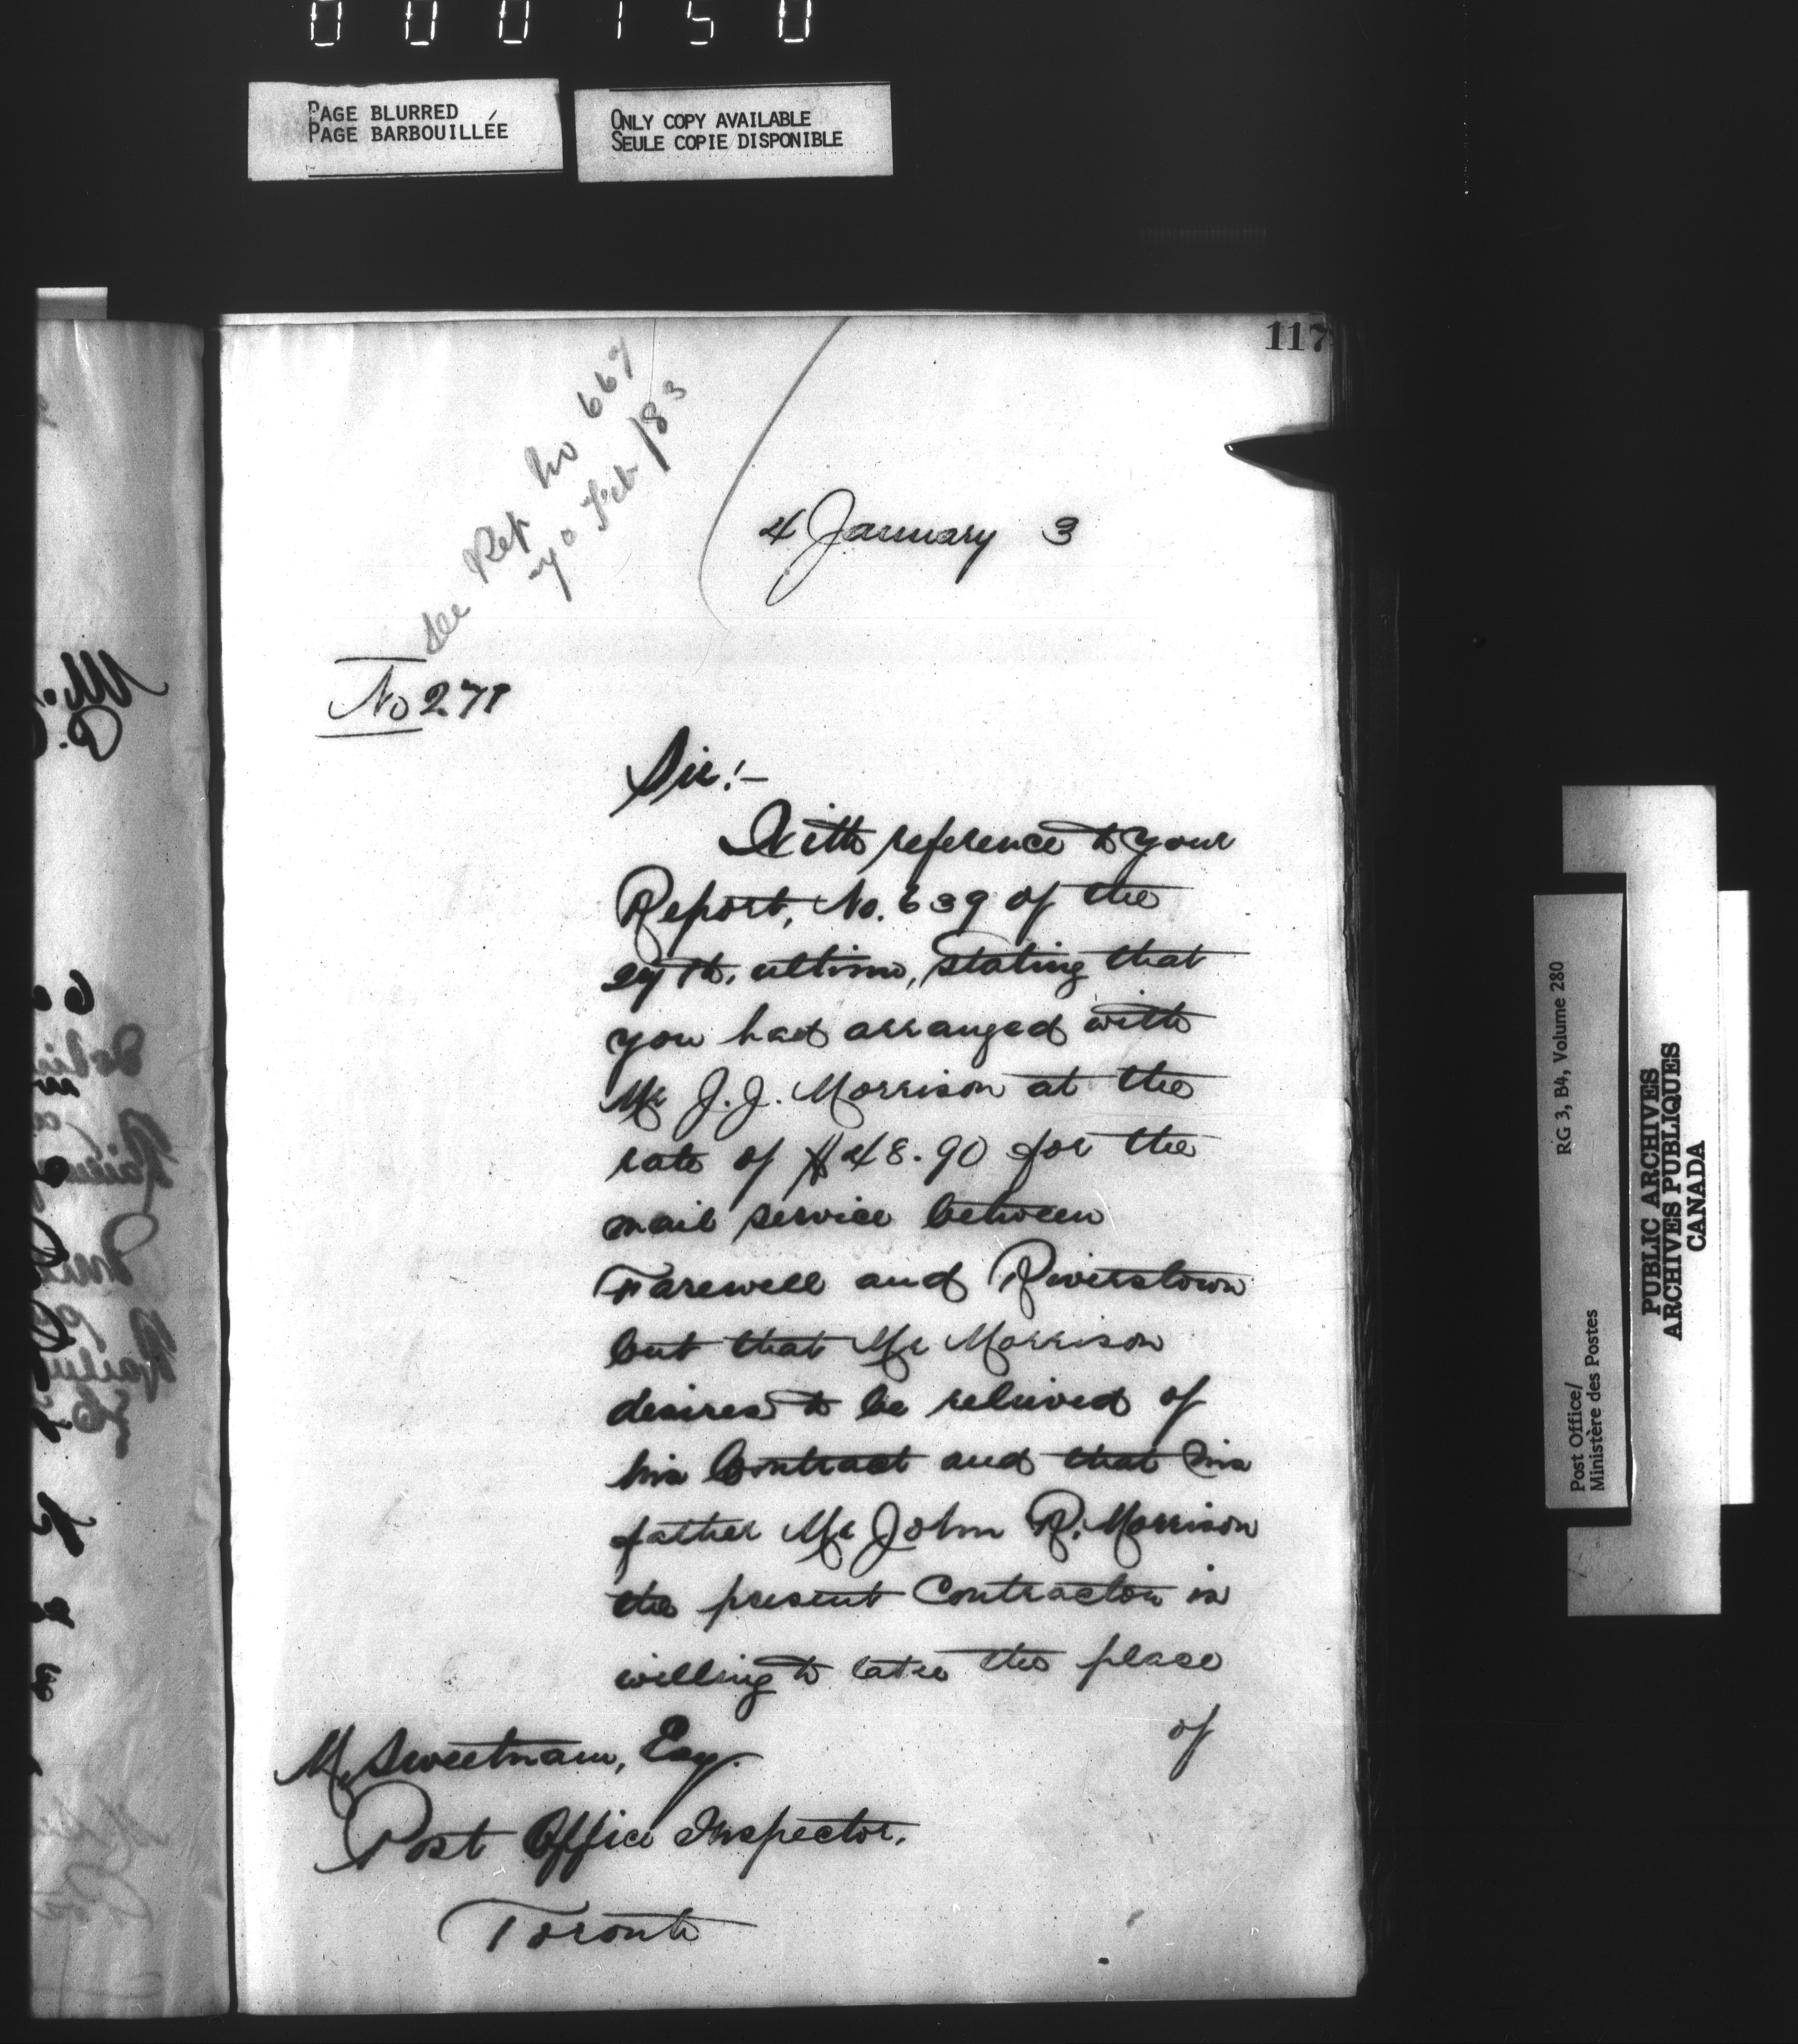 000150
PAGE BLURRED
PAGE BARBOUILLÉE
ONLY COPY AVAILABLE
SEULE COPIE DISPONIBLE
117
See Rep No 667
Feb /83
4 January 3
No 271
Sir:-
With reference to your
Report, No. 639 of the
27th. ultimo, stating that
you had arranged with
Mr J. J. Morrison at the
rate of $48.90 for the
mail service between
Farewell and Riverstown
but that Mr Morrison
desires to be relieved of
his Contract and that his
father Mr John R. Morrison
the present Contractor is
willing to take the place
of
M. Sweetnam, Esq.
Post Office Inspector.
Toronto
RG 3, B4, Volume 280
Post Office/
Ministère des Postes
PUBLIC ARCHIVES
ARCHIVES PUBLIQUES
CANADA